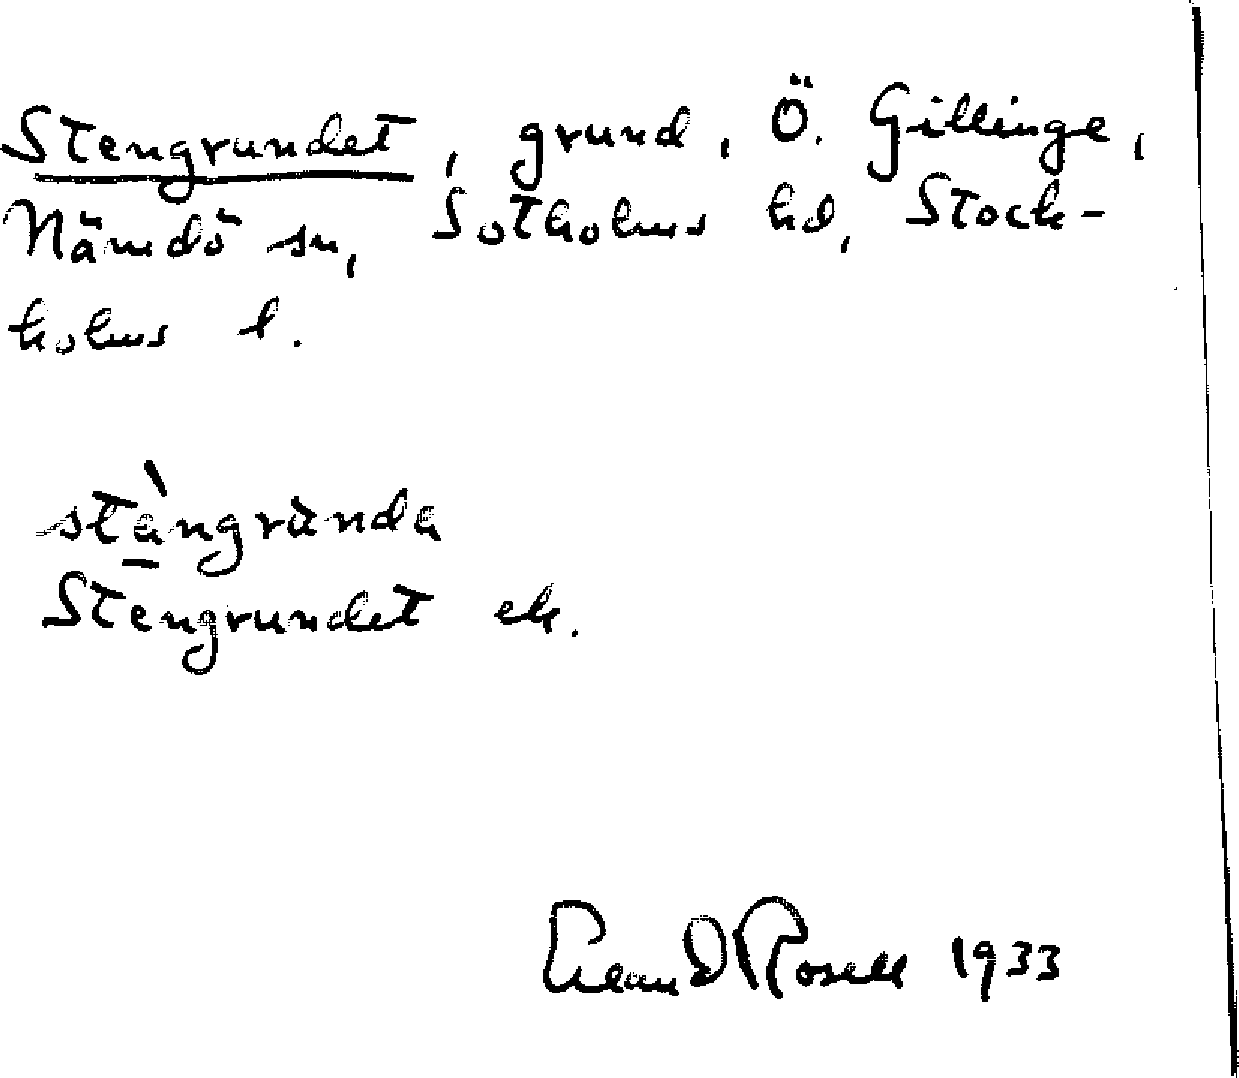 Stengrundet, grund, Ö. Gillinge,
Nämdö sn, Sotholms hd, Stock-
holms l.
stàngrùnda
Stengrundet ek.
Rosell 1933